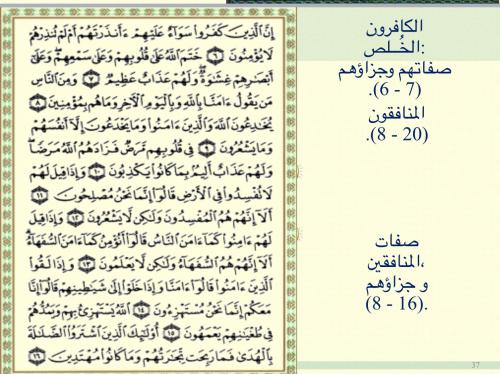 إِنَّ ٱلَّذِينَ كَفَرُوا۟ سَوَآءٌ عَلَيْهِمْ ءَأَنذَرْتَهُمْ أَمْ لَمْ تُنذِرْهُمْ
لَا يُؤْمِنُونَ ٦ خَتَمَ ٱللَّهُ عَلَىٰ قُلُوبِهِمْ وَعَلَىٰ سَمْعِهِمْ وَعَلَىٰٓ
أَبْصَٰرِهِمْ غِشَٰوَةٌ وَلَهُمْ عَذَابٌ عَظِيمٌ ٧ وَمِنَ ٱلنَّاسِ
مَن يَقُولُ ءَامَنَّا بِٱللَّهِ وَبِٱلْيَوْمِ ٱلْءَاخِرِ وَمَا هُم بِمُؤْمِنِينَ ٨
يُخَٰدِعُونَ ٱللَّهَ وَٱلَّذِينَ ءَامَنُوا۟ وَمَا يَخْدَعُونَ إِلَّآ أَنفُسَهُمْ
وَمَا يَشْعُرُونَ ٩ فِى قُلُوبِهِم مَّرَضٌ فَزَادَهُمُ ٱللَّهُ مَرَضًا
وَلَهُمْ عَذَابٌ أَلِيمٌۢ بِمَا كَانُوا۟ يَكْذِبُونَ ١٠ وَإِذَا قِيلَ لَهُمْ
لَا تُفْسِدُوا۟ فِى ٱلْأَرْضِ قَالُوٓا۟ إِنَّمَا نَحْنُ مُصْلِحُونَ ١١
أَلَآ إِنَّهُمْ هُمُ ٱلْمُفْسِدُونَ وَلَٰكِن لَّا يَشْعُرُونَ ١٢ وَإِذَا قِيلَ
لَهُمْ ءَامِنُوا۟ كَمَآ ءَامَنَ ٱلنَّاسُ قَالُوٓا۟ أَنُؤْمِنُ كَمَآ ءَامَنَ ٱلسُّفَهَآءُ
أَلَآ إِنَّهُمْ هُمُ ٱلسُّفَهَآءُ وَلَٰكِن لَّا يَعْلَمُونَ ١٣ وَإِذَا لَقُوا۟
ٱلَّذِينَ ءَامَنُوا۟ قَالُوٓا۟ ءَامَنَّا وَإِذَا خَلَوْا۟ إِلَىٰ شَيَٰطِينِهِمْ قَالُوٓا۟ إِنَّا
مَعَكُمْ إِنَّمَا نَحْنُ مُسْتَهْزِءُونَ ١٤ ٱللَّهُ يَسْتَهْزِئُ بِهِمْ وَيَمُدُّهُمْ
فِى طُغْيَٰنِهِمْ يَعْمَهُونَ ١٥ أُو۟لَٰٓئِكَ ٱلَّذِينَ ٱشْتَرَوُا۟ ٱلضَّلَٰلَةَ
بِٱلْهُدَىٰ فَمَا رَبِحَت تِّجَٰرَتُهُمْ وَمَا كَانُوا۟ مُهْتَدِينَ ١٦
الكافرون
الخُلص:
صفاتهم وجزاؤهم
(6 - 7).
المنافقون
(8 - 20).
صفات
المنافقين،
و جزاؤهم
(8 - 16).
37